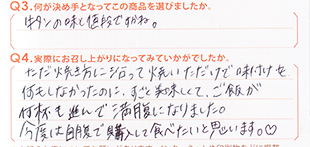 Q3.何が決め手となってこの商品を選びましたか。
牛タンの味と値段ですかね。
Q4.実際にお召し上がりになってみていかがでしたか。
ただ焼き方に沿って焼いただけで味付けも
何もしなかったのに、すごく美味しくて、ご飯が
何杯も進んで満腹になりました。
今度は自腹で購入して食べたいと思います。♡